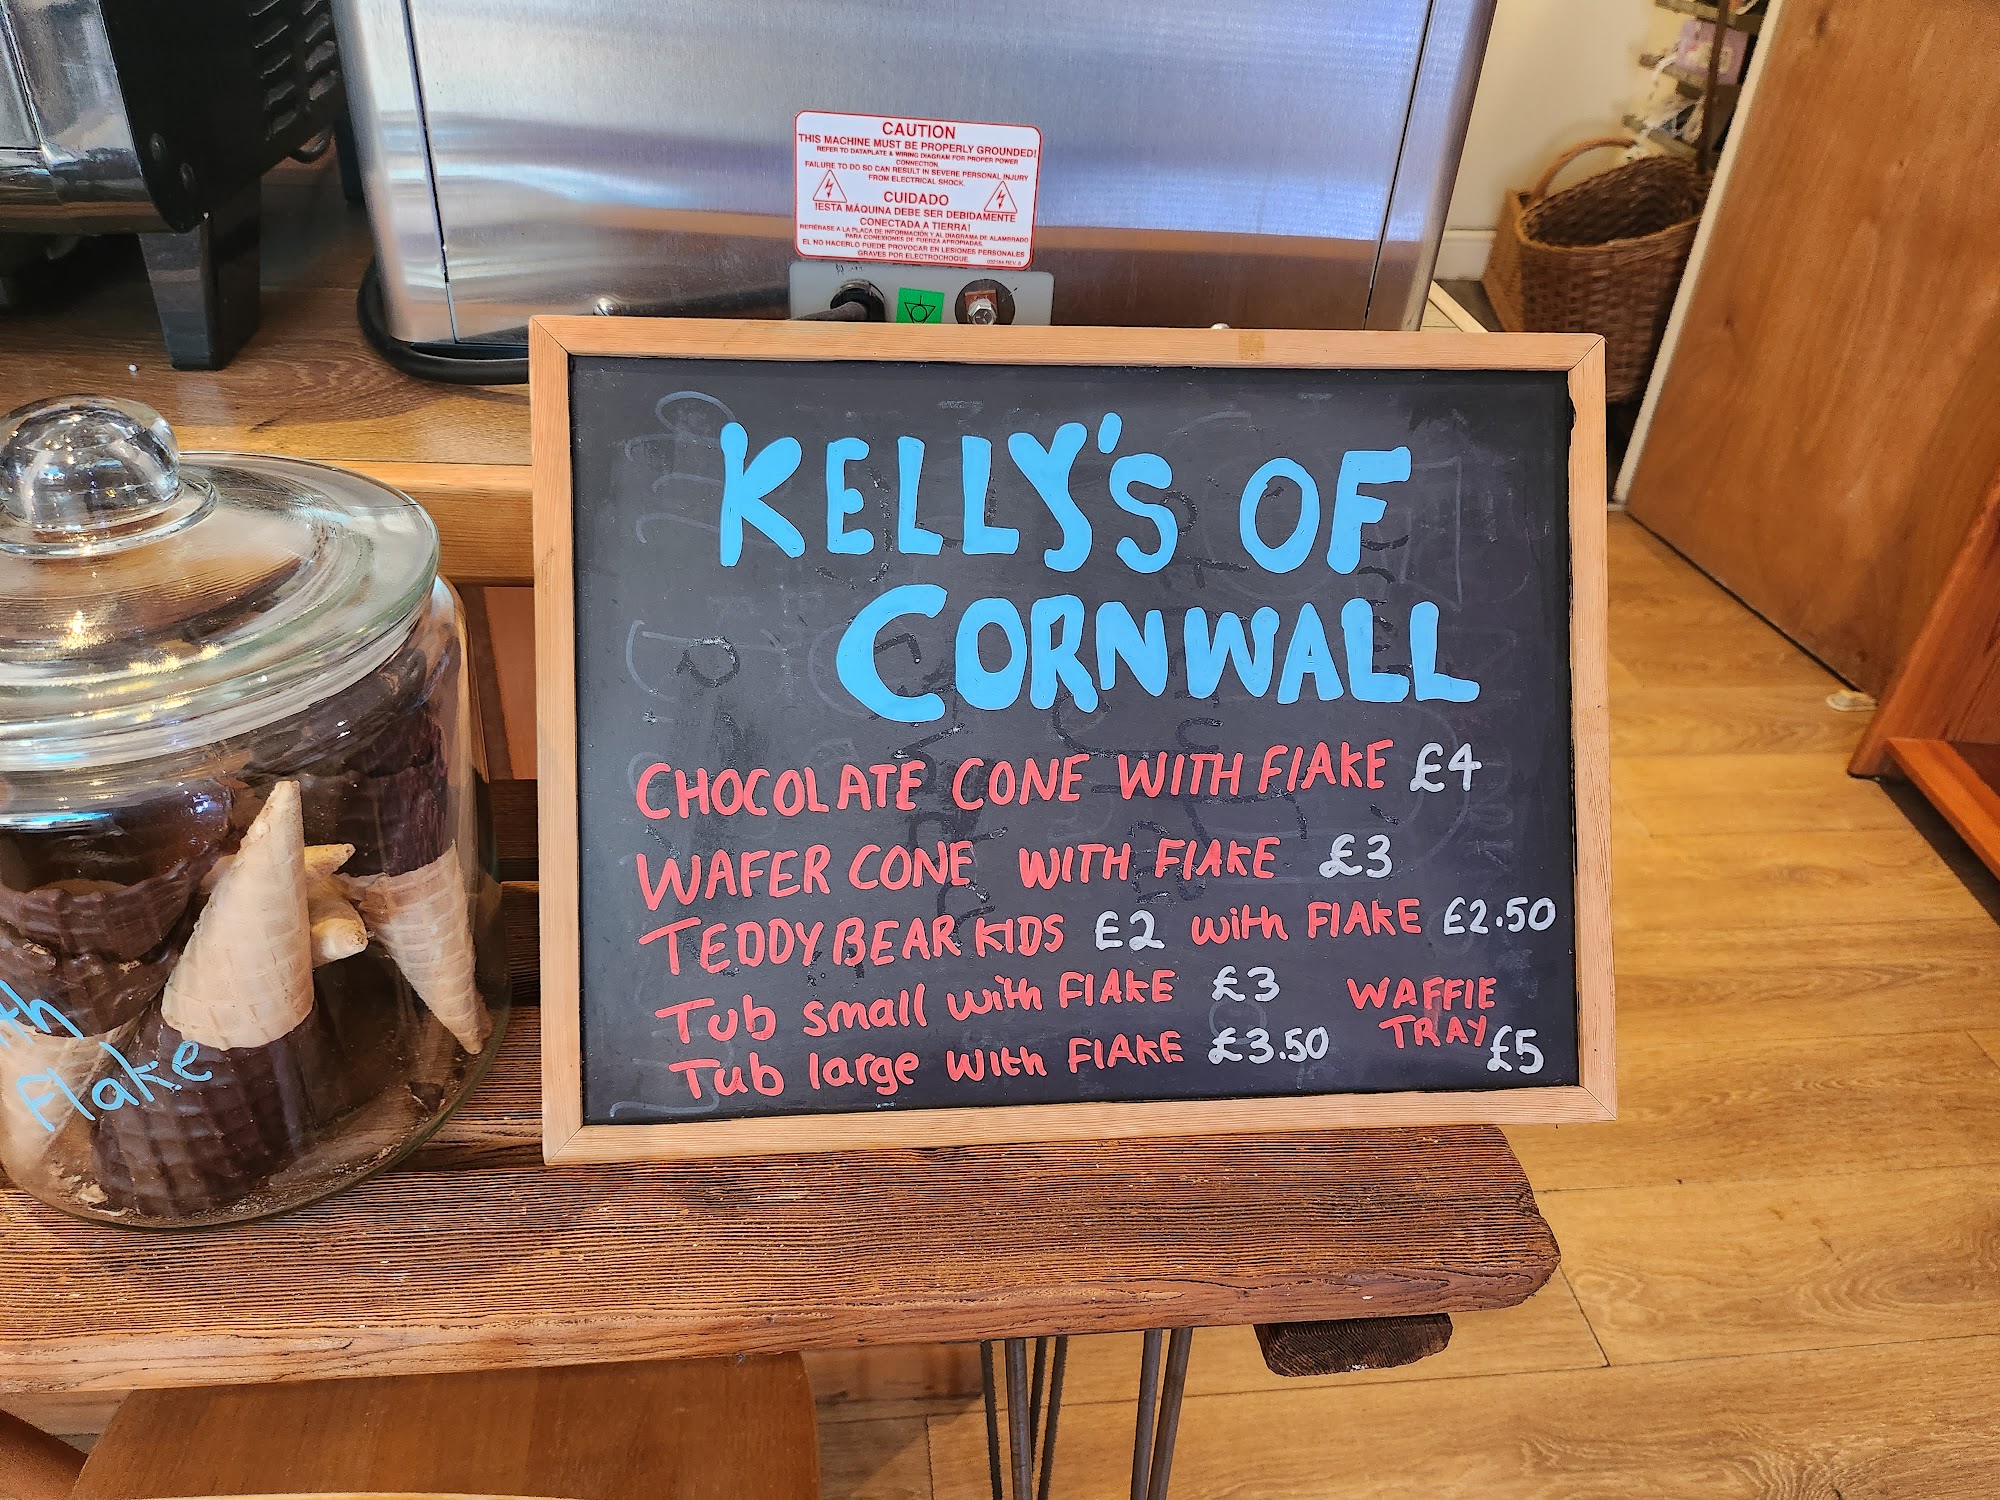 CAUTION
THIS MACHINE MUST BE PROPERLY GROUNDED!
REFER TO DATAPLATE & WIRING DIAGRAM FOR PROPER POWER
CONNECTION.
FAILURE TO DO SO CAN RESULT IN SEVERE PERSONAL INJURY
FROM ELECTRICAL SHOCK.
CUIDADO
!ESTA MÁQUINA DEBE SER DEBIDAMENTE
CONECTADA A TIERRA!
REFIÉRASE A LA PLACA DE INFORMACIÓN Y AL DIAGRAMA DE ALAMBRADO
PARA CONEXIONES DE FUERZA APROPIADAS.
EL NO HACERLO PUEDE PROVOCAR EN LESIONES PERSONALES
GRAVES POR ELECTROCHOQUE.
KELLY'S OF
CORNWALL
CHOCOLATE CONE WITH FlAKE £4
WAFER CONE WITH FlAKE £3
TEDDY BEAR KIDS £2 with FlAKE £2.50
Tub small with FlAKE £3
Tub large with FlAKE £3.50
WAFFlE
TRAY
£5
Flake